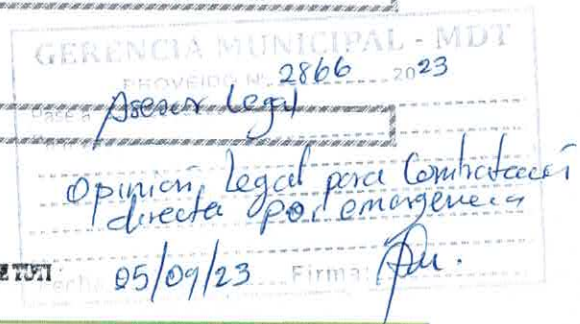 GERENCIA MUNICIPAL - MDT
PROVEIDO Nº 2866 2023
Pase a Asesor Legal
Opinión Legal para Contratación
directa por emergencia
Fecha: 05/09/23 Firma: